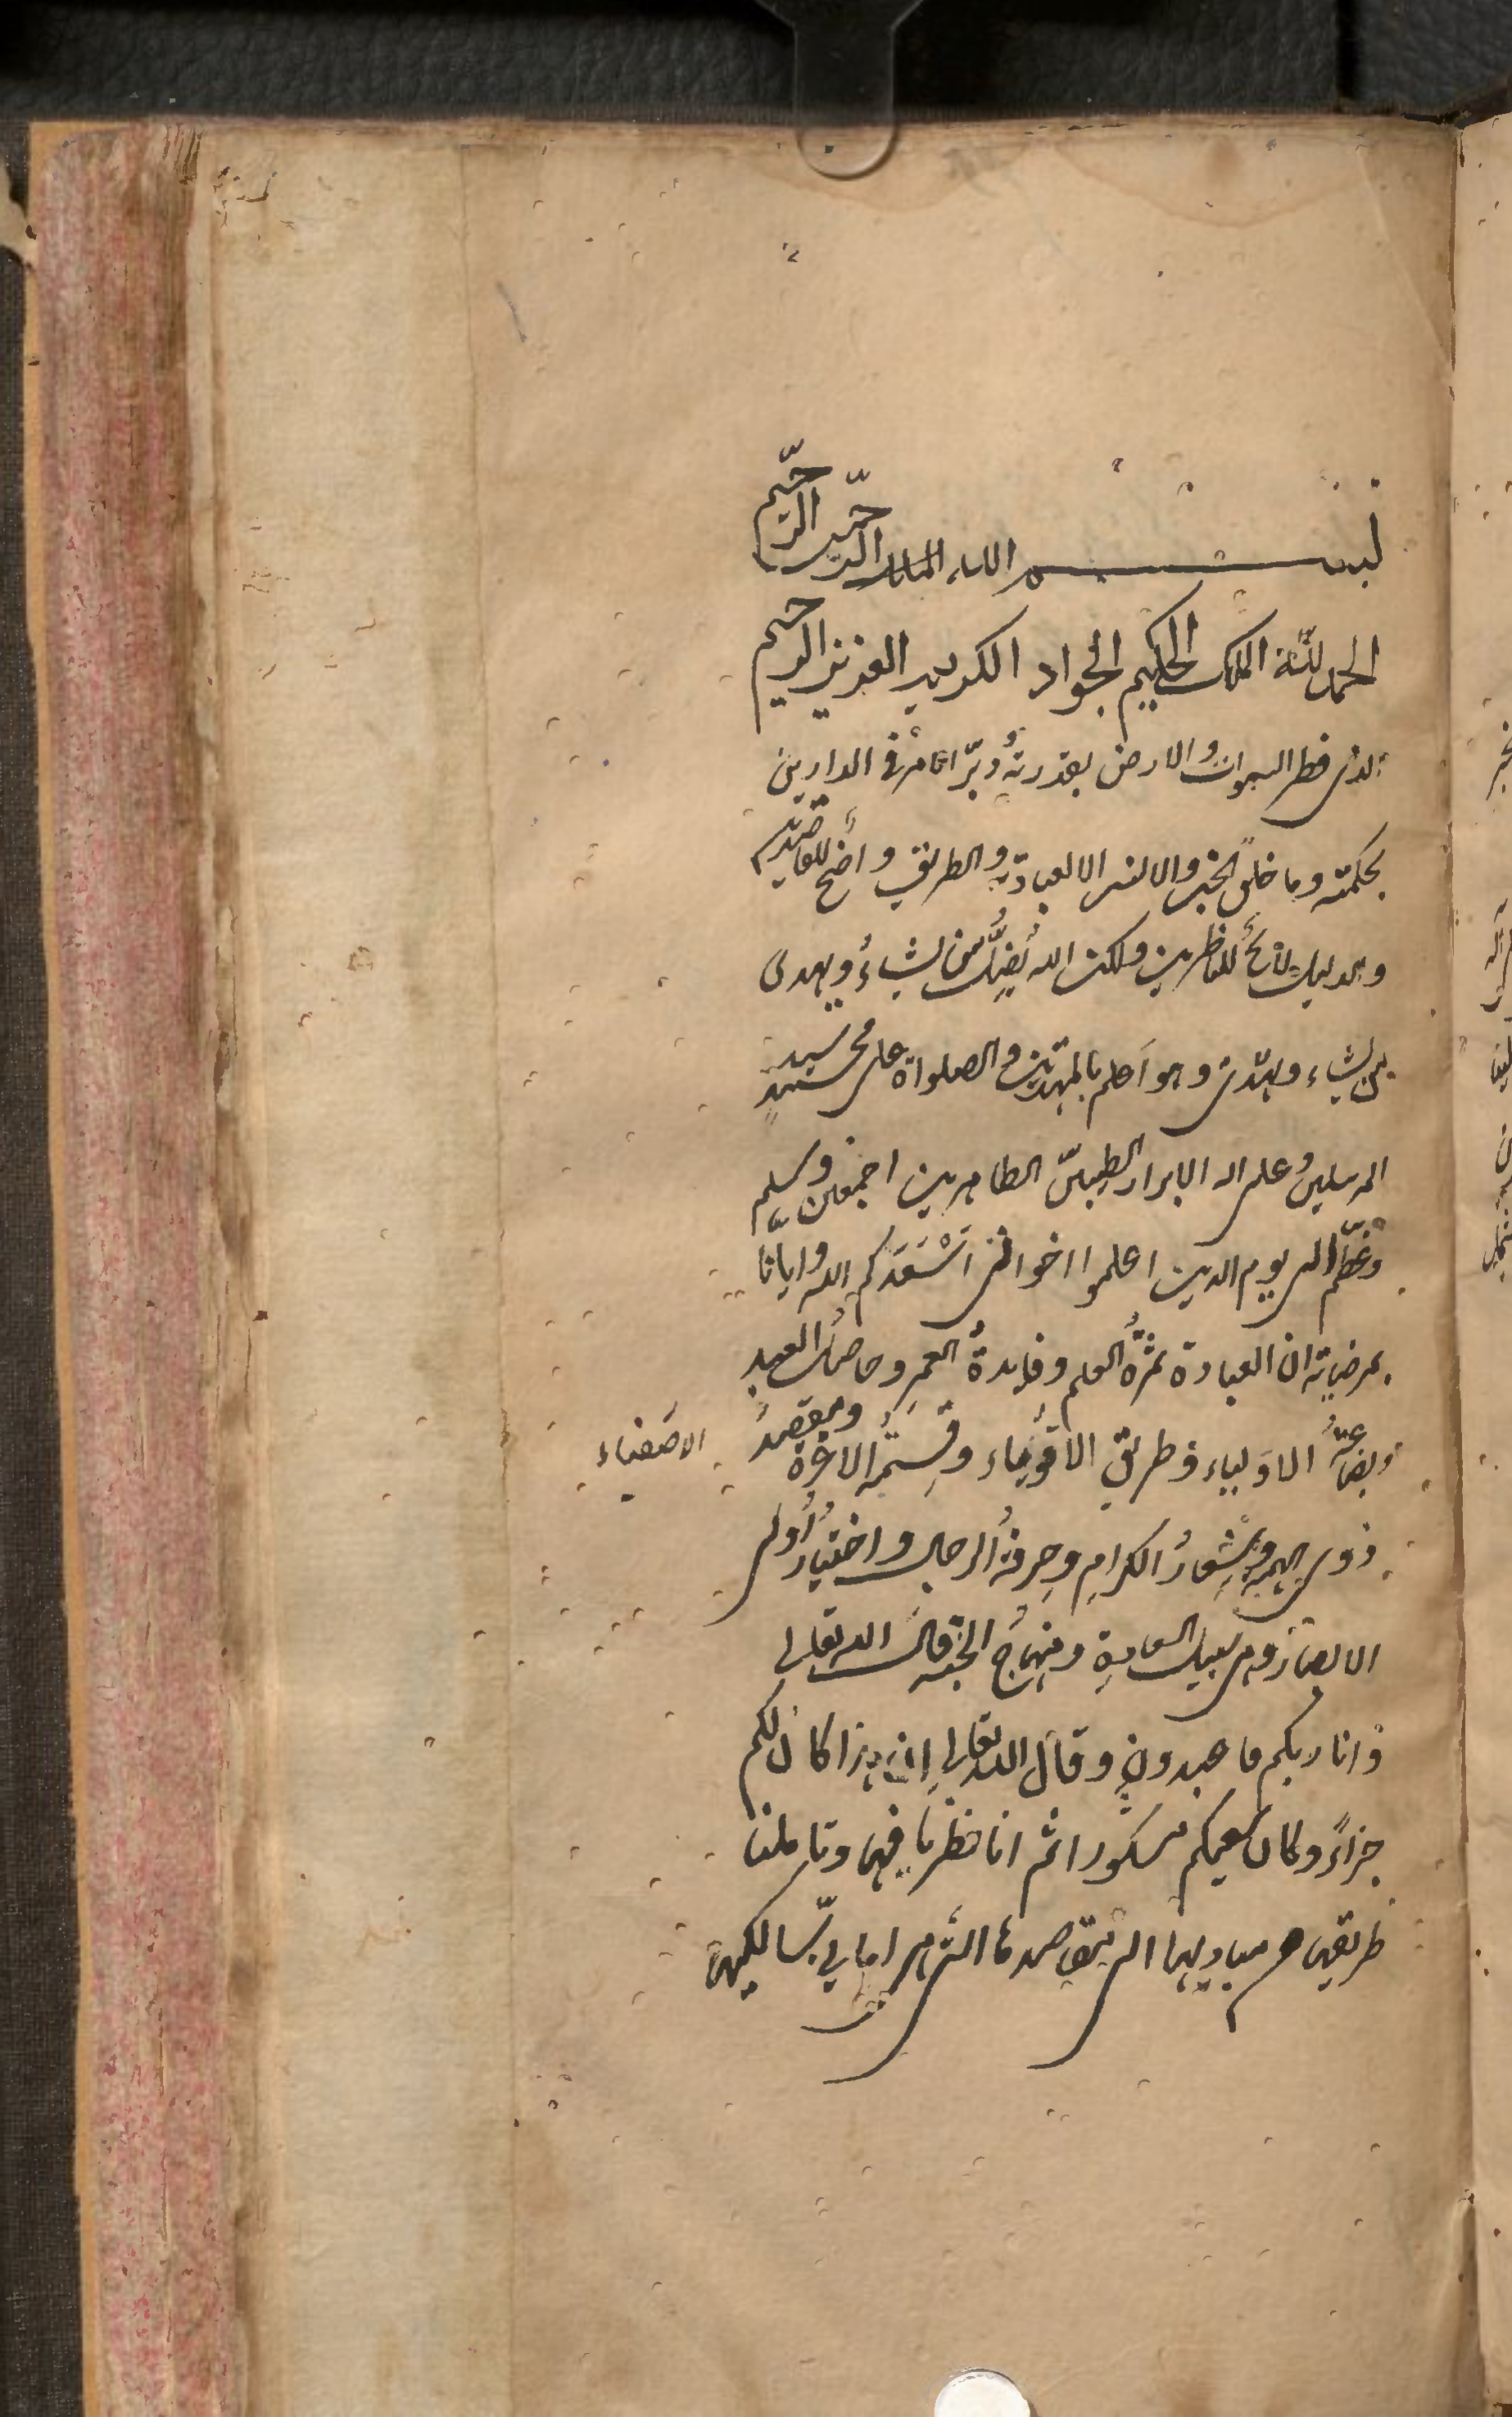 بسم الله الرحمن الرحيم
الحمد لله الملك الحكيم الجواد الكريم العزيز الرحيم
الذى فطر السموات والارض بقدرته ودبّر الامر فى الدارين
بحكمته وما خلق الجن والانس الا لعبادته والطريق واضح للقاصدين
والدليل لائحٌ للناظرين ولكن الله يُضِلُّ من يشاءُ ويهدى
من يشاء ويهدى وهو اَعلم بالمهتدين والصلواة على محمد سيد
المرسلين وعلى اله الابرار الطيبين الطاهرين اجمعين وسلم
وعظّم الى يوم الدين اعلموا اخوانى اَسْعَدَكم الله وايانا
بمرضاته ان العبادة ثمرةُ العلم وفايدةُ العمرِ وحاصلُ العبيدِ
وبضاعةُ الاَولياء وطريق الاقوياء وقِسمةُ الاعزة ومقصدُ
الاصفياء
ذوى الهمة وشِعارُ الكرامِ وحِرفةُ الرجال واختيارُ اُولى
الابصار وهى سبيل السعادة ومنهاجُ الجنة قال الله تعالى
وانا ربكم فاعبدون وقال الله تعالى اِن هذا كان لكم
جزاءً وكان سعيكم مشكورا ثم انا نظرنا فيها وتاملنا
طريقها من مباديها الى مقاصدها التى هى امانى سالكيها